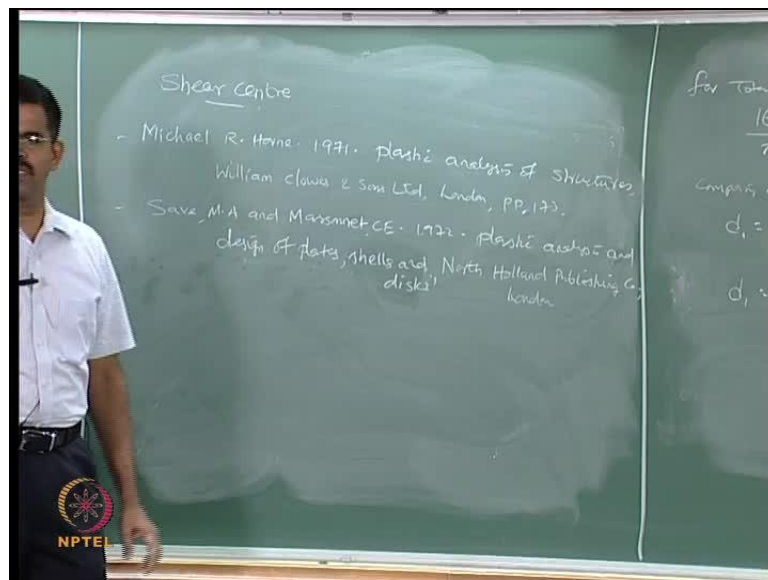 Shear Centre
- Michael R. Horne. 1971. plastic analysis of structures,
William Clowes & Sons Ltd, London, PP. 173.
- Save, M.A and Massonnet, CE. 1972. plastic analysis and
design of plates, shells and disks", North Holland Publishing Co;
London
for Total
16
Comparing
d₁ =
d₁ =
NPTEL